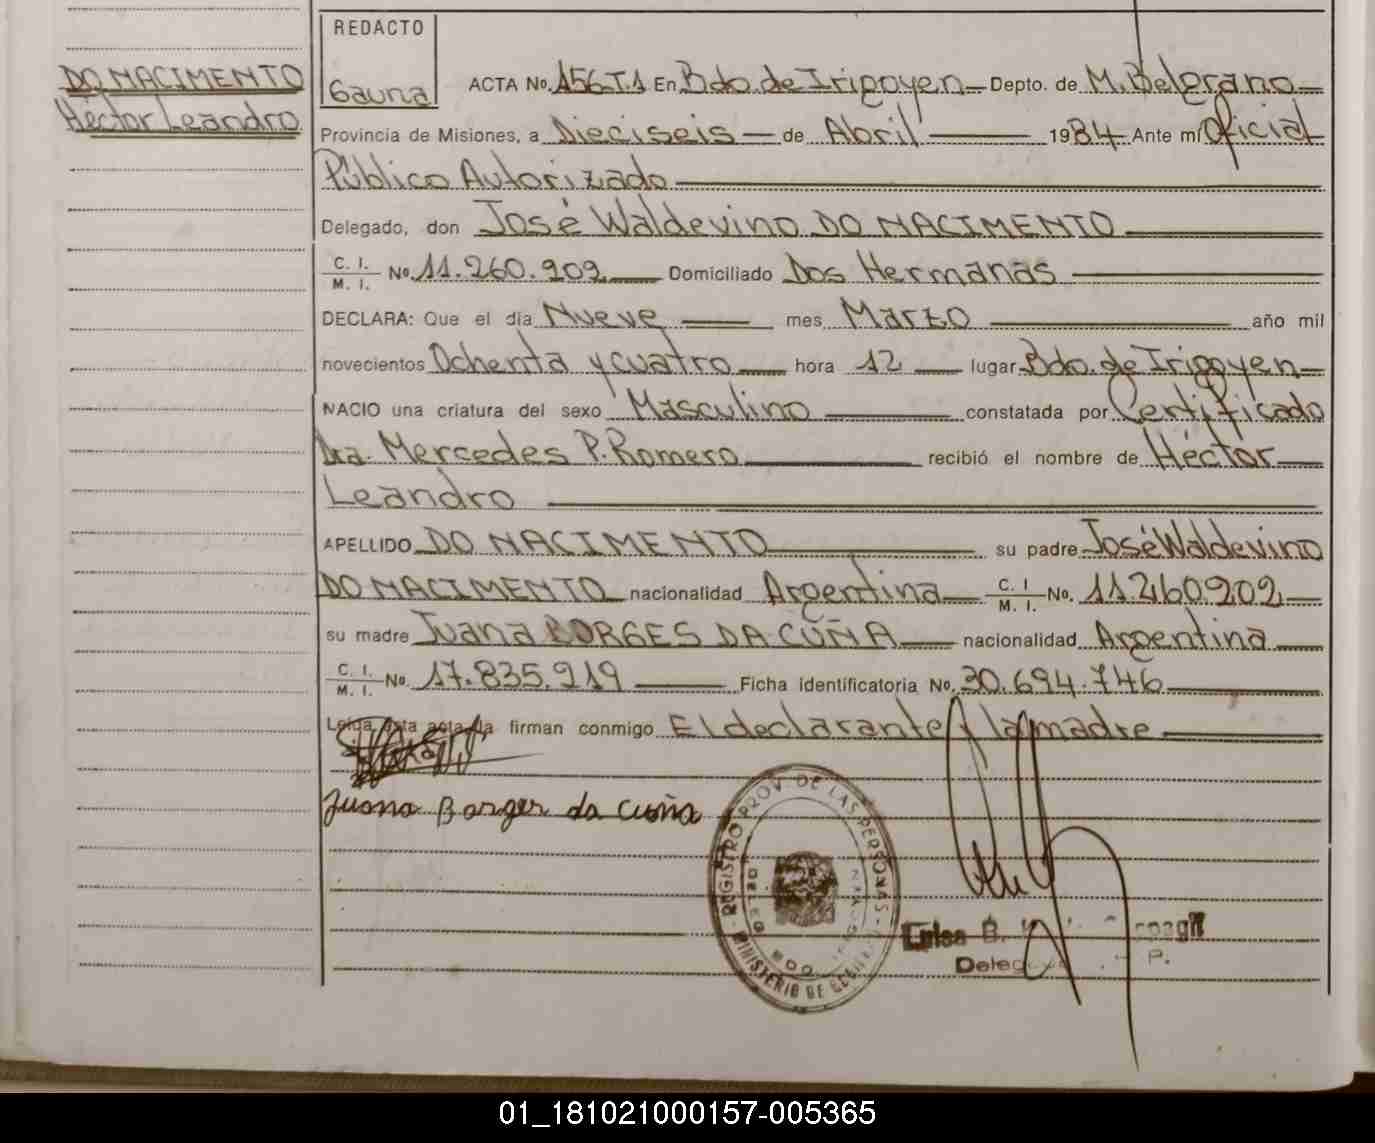 DO NACIMENTO
Héctor Leandro
REDACTO
Gauna
ACTA No. 156T.1 En Bdo. de Irigoyen Depto. de M. Belgrano
Provincia de Misiones, a Dieciseis de Abril 1984 Ante mí Oficial
Público Autorizado
Delegado, don José Waldevino DO NACIMENTO
C. I. M. I. No. 11.260.202 Domiciliado Dos Hermanas
DECLARA: Que el día Nueve mes Marzo año mil
novecientos Ochenta y cuatro hora 12 lugar Bdo. de Irigoyen
NACIO una criatura del sexo Masculino constatada por Certificado
Dra. Mercedes P. Romero recibió el nombre de Héctor
Leandro
APELLIDO DO NACIMENTO su padre José Waldevino
DO NACIMENTO nacionalidad Argentina C. I. M. I. No. 11.260.202
su madre Juana BORGES DA CUÑA nacionalidad Argentina
C. I. M. I. No. 17.835.919 Ficha identificatoria No. 30.694.746
Leída esta acta la firman conmigo El declarante y la madre
Juana Borges da Cuña
REGISTRO PROV. DE LAS PERSONAS
MINISTERIO DE
DELEG BDO
Luisa B.
01_181021000157-005365